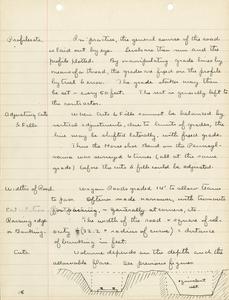 Profiles etc. In practice, the general course of the road
is laid out by eye. Levels are then run and the
profile plotted. By manipulating grade lines by
means of a thread, the grades are fixed on the profile
by trial & error. The grade stakes may then
be set every 50 feet. The rest is generally left to
the contractor.
Adjusting Cuts & Fills When Cuts & Fills cannot be balanced by
vertical adjustments, due to limits of grades, the
line may be shifted laterally, with fixed grade.
Thus the Horse shoe Bend on the Pennsyl-
vania was surveyed times (all at the same
grade) before the cuts & fills could be adjusted.
Width of Road. Wagon Roads graded 14' to allow teams
to pass. Often made narrower, with turnouts
for passing, generally at corners, etc.
Raising edge or Banking. The width of the road × square of velo-
city ÷ (32.2 × radius of curve) = distance
of banking in feet.
Cuts. Volume depends on the depth and the
allowable slope. See previous figures.
equivalent
cut